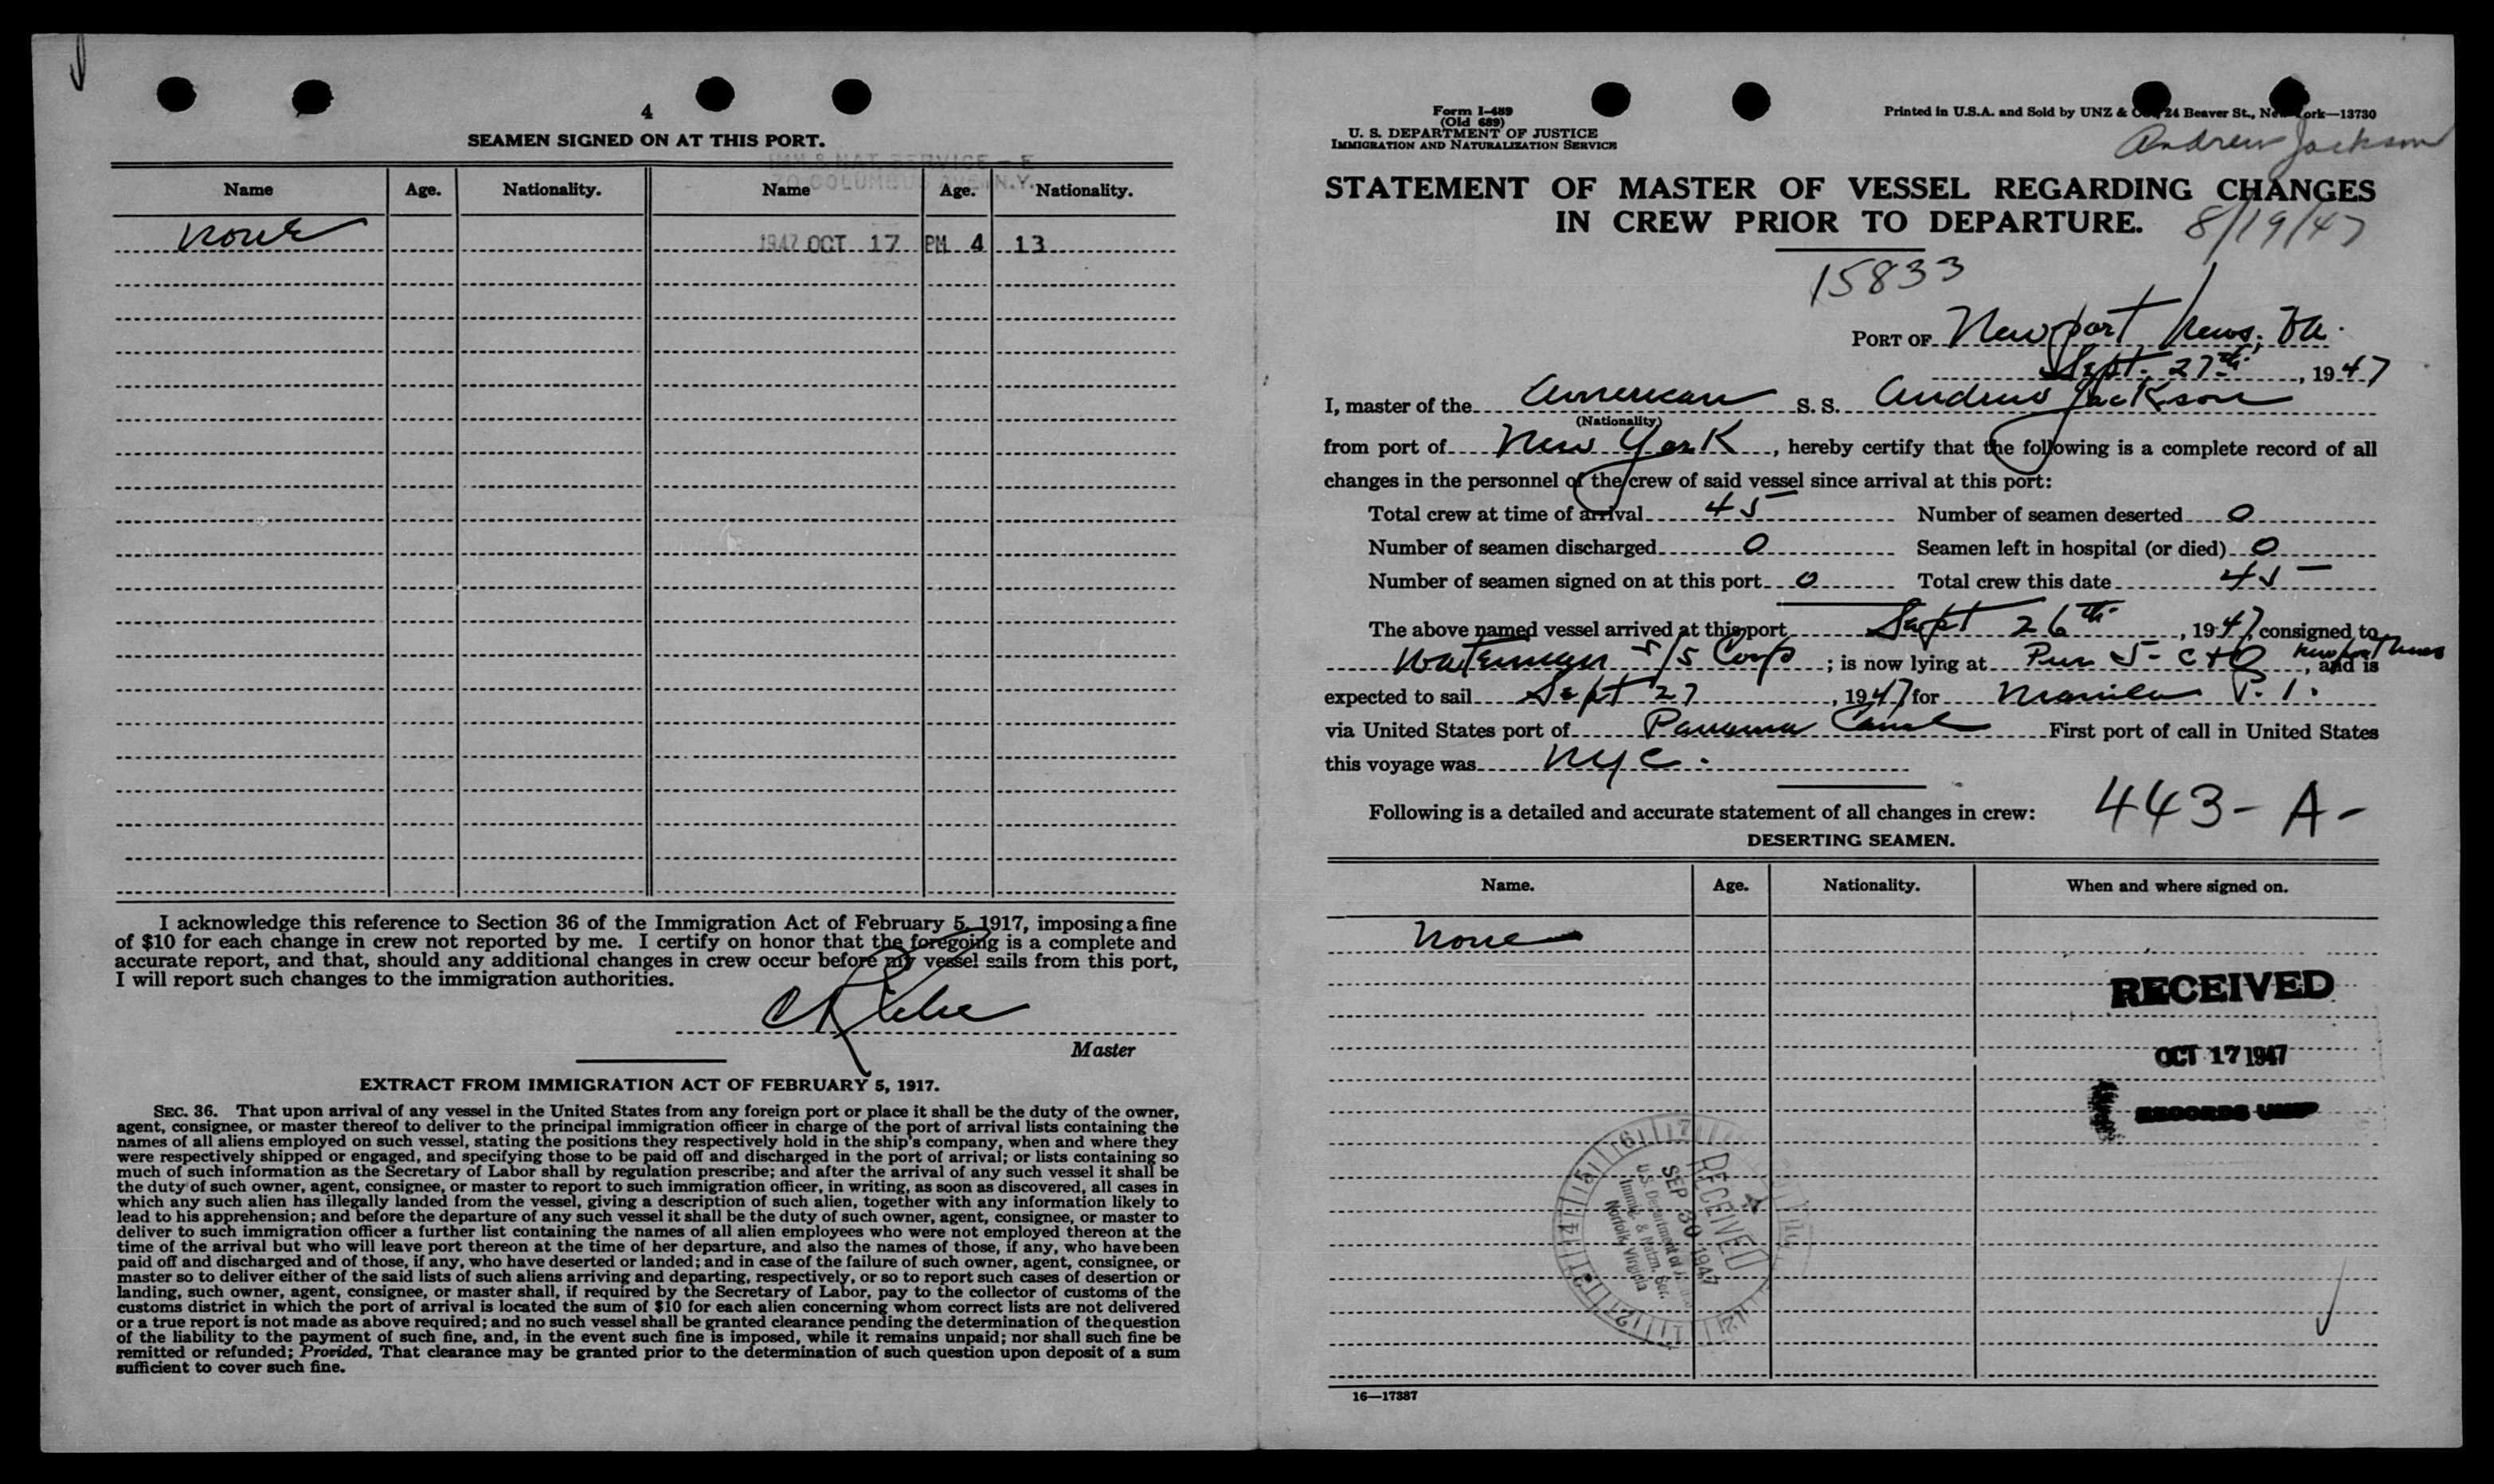 4
SEAMEN SIGNED ON AT THIS PORT.
IMM & NAT SERVICE
70 COLUMBUS AVE. N.Y.
Name Age. Nationality. Name Age. Nationality.
None 1947 OCT 17 PM 4 13
I acknowledge this reference to Section 36 of the Immigration Act of February 5, 1917, imposing a fine
of $10 for each change in crew not reported by me. I certify on honor that the foregoing is a complete and
accurate report, and that, should any additional changes in crew occur before my vessel sails from this port,
I will report such changes to the immigration authorities.
Master
EXTRACT FROM IMMIGRATION ACT OF FEBRUARY 5, 1917.
SEC. 36. That upon arrival of any vessel in the United States from any foreign port or place it shall be the duty of the owner,
agent, consignee, or master thereof to deliver to the principal immigration officer in charge of the port of arrival lists containing the
names of all aliens employed on such vessel, stating the positions they respectively hold in the ship's company, when and where they
were respectively shipped or engaged, and specifying those to be paid off and discharged in the port of arrival; or lists containing so
much of such information as the Secretary of Labor shall by regulation prescribe; and after the arrival of any such vessel it shall be
the duty of such owner, agent, consignee, or master to report to such immigration officer, in writing, as soon as discovered, all cases in
which any such alien has illegally landed from the vessel, giving a description of such alien, together with any information likely to
lead to his apprehension; and before the departure of any such vessel it shall be the duty of such owner, agent, consignee, or master to
deliver to such immigration officer a further list containing the names of all alien employees who were not employed thereon at the
time of the arrival but who will leave port thereon at the time of her departure, and also the names of those, if any, who have been
paid off and discharged and of those, if any, who have deserted or landed; and in case of the failure of such owner, agent, consignee, or
master so to deliver either of the said lists of such aliens arriving and departing, respectively, or so to report such cases of desertion or
landing, such owner, agent, consignee, or master shall, if required by the Secretary of Labor, pay to the collector of customs of the
customs district in which the port of arrival is located the sum of $10 for each alien concerning whom correct lists are not delivered
or a true report is not made as above required; and no such vessel shall be granted clearance pending the determination of the question
of the liability to the payment of such fine, and, in the event such fine is imposed, while it remains unpaid; nor shall such fine be
remitted or refunded; Provided, That clearance may be granted prior to the determination of such question upon deposit of a sum
sufficient to cover such fine.
Form I-489
(Old 689)
U. S. DEPARTMENT OF JUSTICE
IMMIGRATION AND NATURALIZATION SERVICE
Printed in U.S.A. and Sold by UNZ & 24 Beaver St., New York—13730
Andrew Jackson
STATEMENT OF MASTER OF VESSEL REGARDING CHANGES
IN CREW PRIOR TO DEPARTURE.
8/19/47
15833
PORT OF Newport News, Va.
Sept. 27th, 1947
I, master of the American S. S. Andrew Jackson
(Nationality)
from port of New York, hereby certify that the following is a complete record of all
changes in the personnel of the crew of said vessel since arrival at this port:
Total crew at time of arrival 45 Number of seamen deserted 0
Number of seamen discharged 0 Seamen left in hospital (or died) 0
Number of seamen signed on at this port 0 Total crew this date 45
The above named vessel arrived at this port Sept 26th, 1947, consigned to
Waterman S/S Corp; is now lying at Pier 5- C+O Newport News, and is
expected to sail Sept 27, 1947 for Manila P. I.
via United States port of Panama Canal First port of call in United States
this voyage was NYC.
Following is a detailed and accurate statement of all changes in crew:
443-A-
DESERTING SEAMEN.
Name. Age. Nationality. When and where signed on.
None
RECEIVED
OCT 17 1947
RECORDS UNIT
RECEIVED
SEP 30 1947
U.S. Department of
Immig. & Natzn. Ser.
Norfolk, Virginia
16—17387